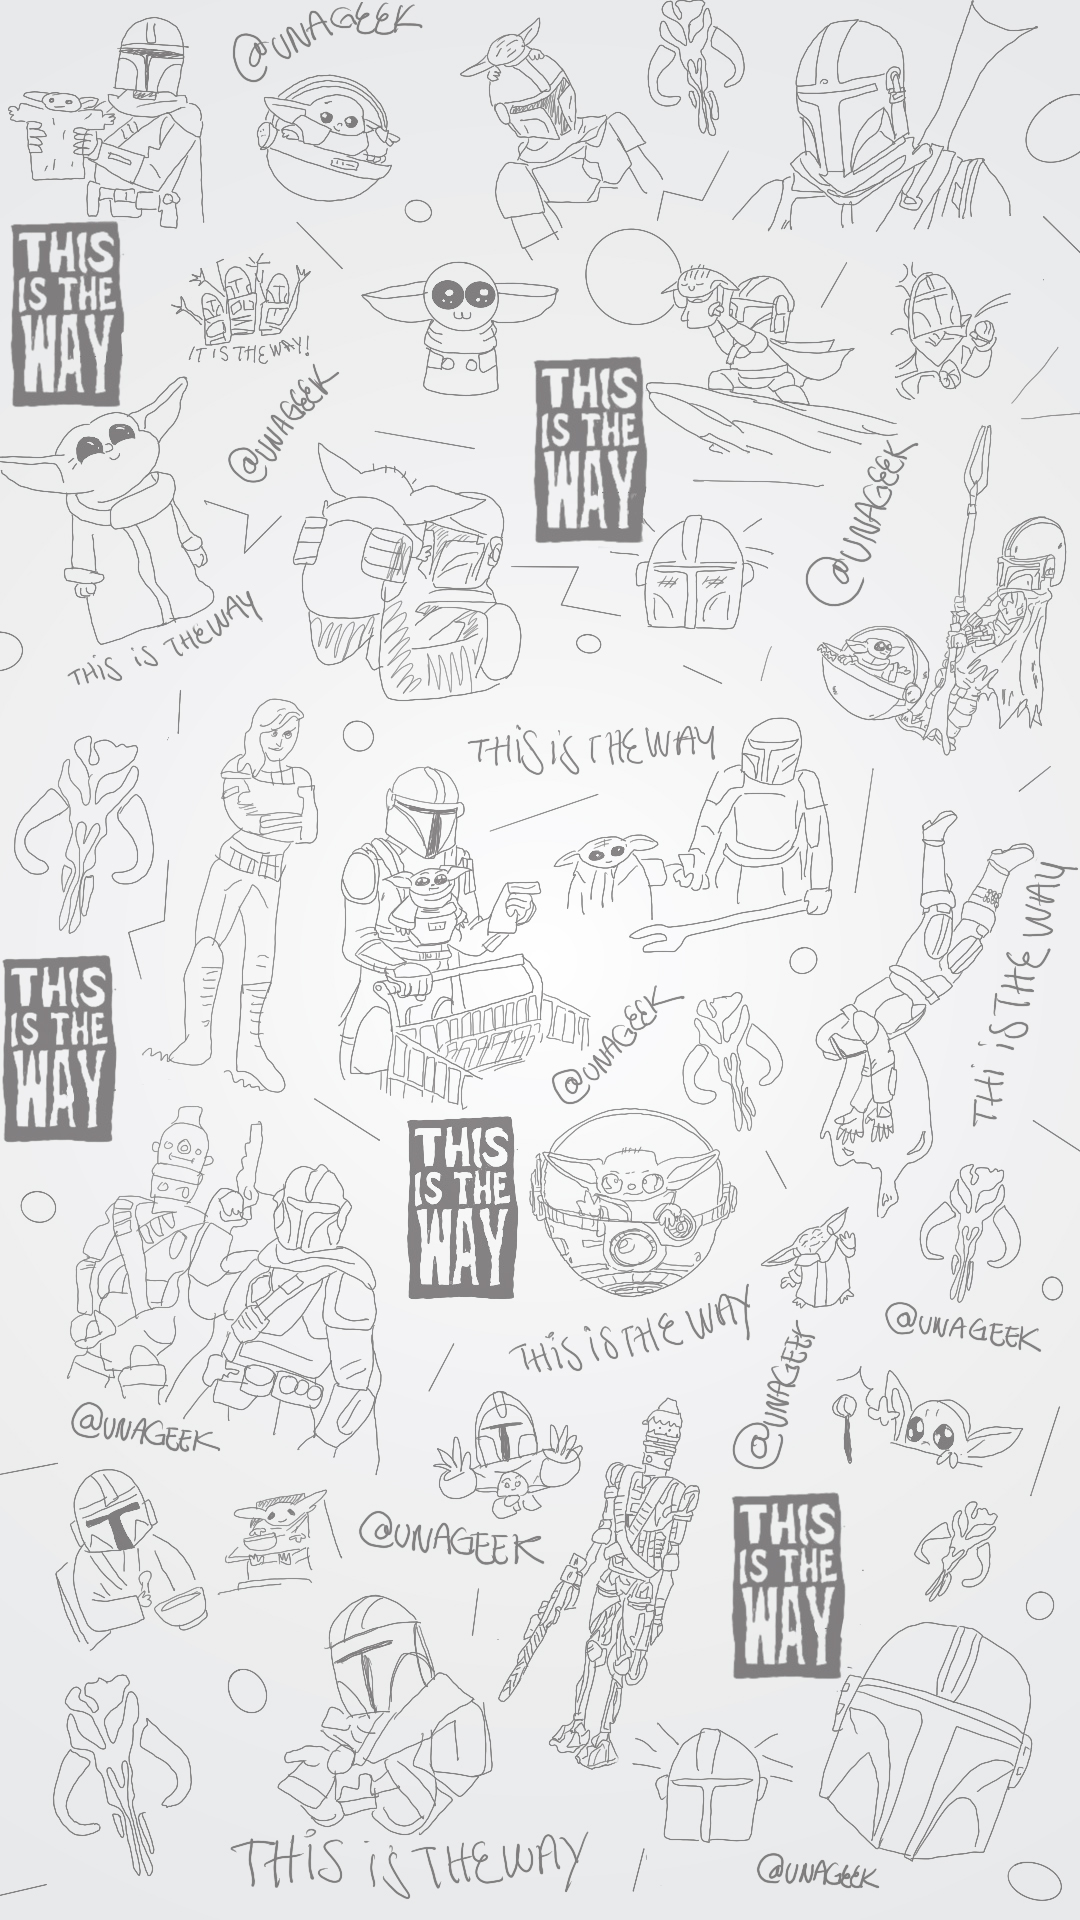 @UNAGEEK
THIS
IS THE
WAY
IT IS THE WAY!
@UNAGEEK
THIS
IS THE
WAY
@UNAGEEK
THIS IS THE WAY
THIS IS THE WAY
THIS IS THE WAY
THIS
IS THE
WAY
@UNAGEEK
THIS
IS THE
WAY
THIS IS THE WAY
@UNAGEEK
@UNAGEEK
@UNAGEEK
@UNAGEEK
THIS
IS THE
WAY
THIS IS THE WAY
@UNAGEEK